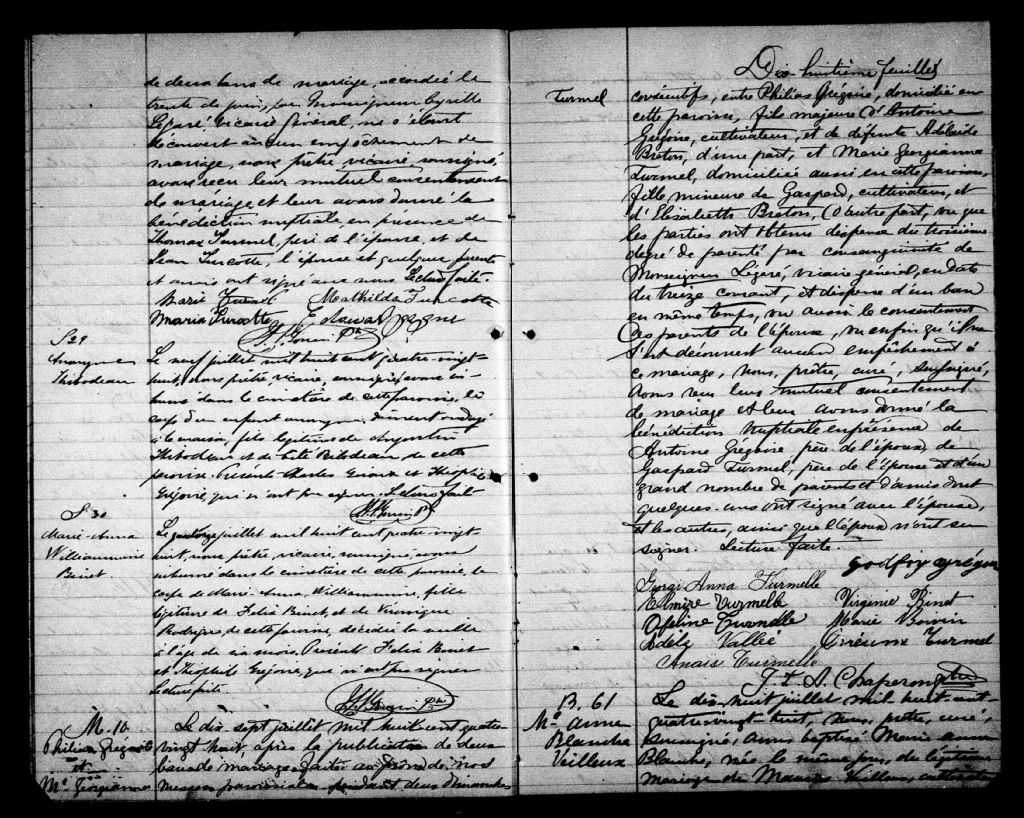 de deux bans de mariage, accordée le
trente de juin, par Monseigneur Cyrille
Légaré, Vicaire Général, ne s'étant
découvert aucun empêchement de
mariage, nous prêtre vicaire, soussigné,
avons reçu leur mutuel consentement
de mariage et leur avons donné la
bénédiction nuptiale en présence de
Thomas Turmel, père de l'épouse, et de
Jean Turcotte, l'épouse et quelques parents
et amis ont signé avec nous Lecture faite
Marie Turcotte Mathilda Turcotte
Maria Turcotte Edouard
Ptre
S 29
Anonyme
Thibodeau
Le neuf juillet mil huit cent quatre-vingt-
huit, nous prêtre vicaire, soussigné, avons in-
humé dans le cimetière de cette paroisse, le
corps d'un enfant anonyme dûment ondoyé
à la maison, fils légitime de Augustin
Thibodeau et de Bilodeau de cette
paroisse. Présents Charles Giroux et Théophile
Grégoire, qui n'ont pu signer. Lecture faite
Ptre
S 30
Marie-Anna
Williammine
Binet
Le quatorze juillet mil huit cent quatre-vingt-
huit, nous prêtre, vicaire, soussigné, avons
inhumé dans le cimetière de cette paroisse, le
corps de Marie-Anna Williammine, fille
légitime de Felix Binet et de Véronique
Rodrigue de cette paroisse, décédée la veille
à l'âge de six mois. Présents Felix Binet
et Théophile Grégoire, qui n'ont pu signer
Lecture faite
Ptre
M. 10.
Philias Grégoire
et
Mie Géorgianna
Le dix-sept juillet mil huit cent quatre
vingt huit, après la publication de deux
bans de mariage faite au prône de nos
messes paroissiales pendant deux Dimanches
Dix-huitième feuillet
Turmel
consécutifs, entre Philias Grégoire, domicilié en
cette paroisse, fils majeur d'Antoine
Grégoire, cultivateur, et de défunte Adélaïde
Breton, d'une part, et Marie Georgianna
Turmel, domiciliée aussi en cette paroisse,
fille mineure de Gaspard, cultivateur, et
d'Elisabeth Breton, d'autre part, vu que
les parties ont obtenu dispense du troisième
degré de parenté par consanguinité de
Monseigneur Légaré, vicaire général, en date
du treize courant, et dispense d'un ban
en même temps, vu aussi le consentement
des parents de l'époux, vu enfin qu'il ne
s'est découvert aucun empêchement à
ce mariage, Nous, prêtre, curé, soussigné,
avons reçu leur mutuel consentement
de mariage et leur avons donné la
bénédiction nuptiale en présence de
Antoine Grégoire, père de l'époux, de
Gaspard Turmel, père de l'épouse et d'un
grand nombre de parents et d'amis dont
quelques-uns ont signé avec l'épouse,
et les autres, ainsi que l'époux n'ont su
signer. Lecture faite.
godfroy grégoire
Georgi Anna Turmelle
Elmire Turmelle Virginie Binet
Opeline Turmelle Marie Boivin
Adèle Vallée Turmel
Anaïs Turmelle
J. A. Chaperon, ptre
B. 61
Mie Anne
Blanche
Veilleux
Le dix-huit juillet mil huit cent
quatre vingt huit, nous, prêtre, curé,
soussigné, avons baptisé Marie Anne
Blanche, née le même jour, du légitime
mariage de Veilleux, cultivateur